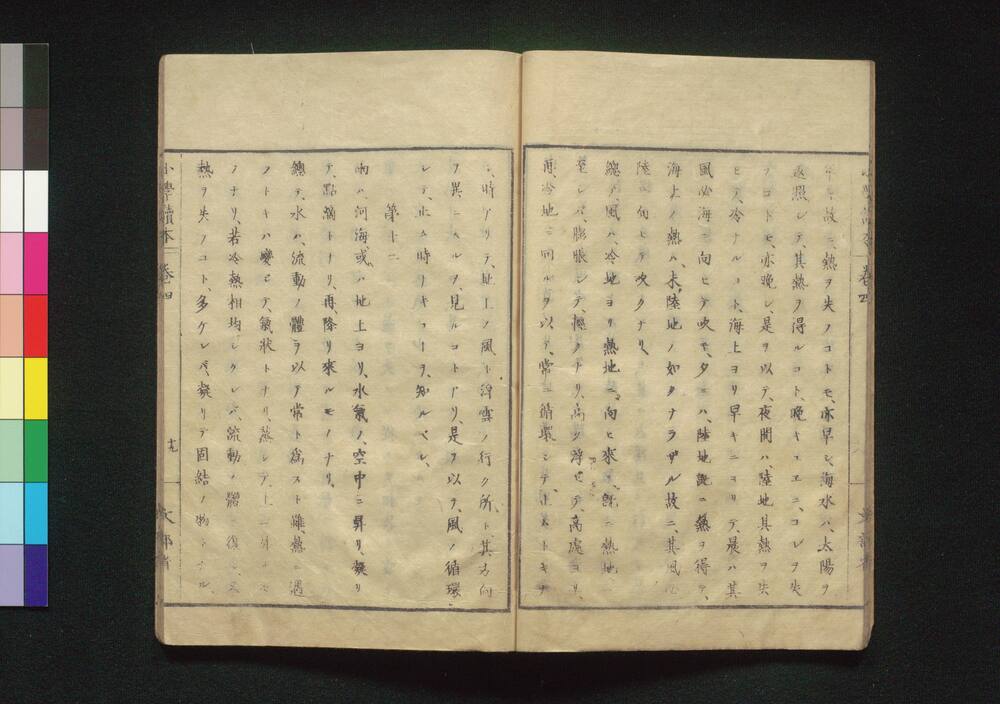 年ヲ故ニ、熱ヲ失フコトモ、亦早シ、海水ハ、太陽ヲ
返照シテ、其熱ヲ得ルコト、晩キユエニ、コレヲ失
フコトモ、亦晩シ、是ヲ以テ、夜間ハ、陸地其熱ヲ失
ヒテ、冷ナルコト、海上ヨリ早キニヨリテ、晨ハ其
風必海ニ向ヒテ吹キ、夕ニハ、陸地既ニ熱ヲ得テ、
海上ノ熱ハ、未陸地ノ如クナラザル故ニ、其風必
陸ニ向ヒテ吹クナリ、
總テ、風ハ、冷地ヨリ熱地ニ向ヒ來リ、既ニ熱地ニ
至レバ、膨脹シテ、輕クナリ、高ク浮ビテ、高處ヨリ、
再、冷地ニ回ルヲ以テ、常ニ循環シテ、止ムトキナ
シ、時アリテ、地上ノ風ト浮雲ノ行ク所ト其方向
ヲ異ニスルヲ、見ルコトアリ、是ヲ以テ、風ノ循環
シテ、止ム時ナキコトヲ、知ルベシ、
第十二
雨ハ、河海、或ハ地上ヨリ、水氣ノ、空中ニ昇リ、凝リ
テ、點滴トナリ、再、降リ來ルモノナリ、
總テ、水ハ、流動ノ體ヲ以テ常ト爲スト雖、熱ニ遇
フトキハ變ジテ、氣狀トナリ、蒸シテ、上ニ昇ルモ
ノナリ、若冷熱相均シケレバ、流動ノ體ニ復シ、又
熱ヲ失フコト、多ケレバ、凝リテ固結ノ物トナル、
小學讀本 卷四
十九
文部省